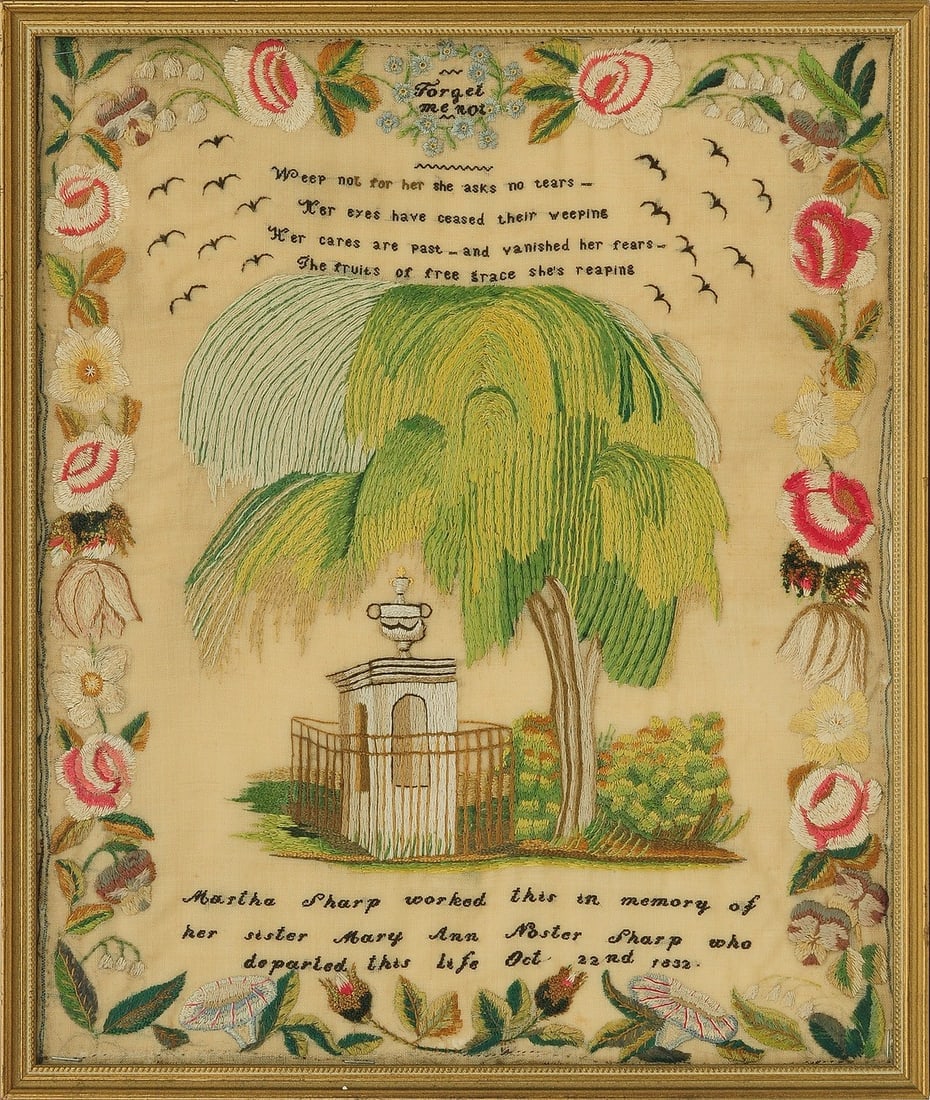 Forget
me not
Weep not for her she asks no tears —
Her eyes have ceased their weeping
Her cares are past — and vanished her fears —
The fruits of free grace she's reaping
Martha Sharp worked this in memory of
her sister Mary Ann Noster Sharp who
departed this life Oct 22nd 1832.